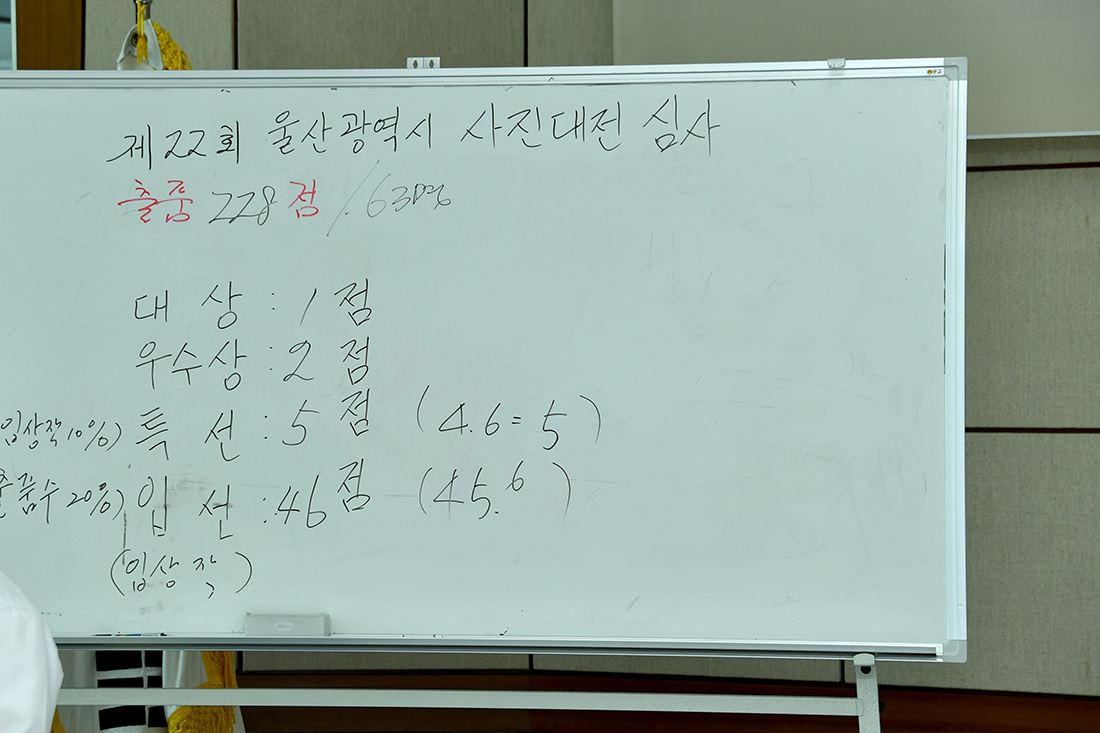 제22회 울산광역시 사진대전 심사
출품 228점 / 63명
대상 : 1점
우수상 : 2점
입상작 10%) 특선 : 5점 (4.6 = 5)
출품수 20%) 입선 : 46점 (45.6)
(입상작)